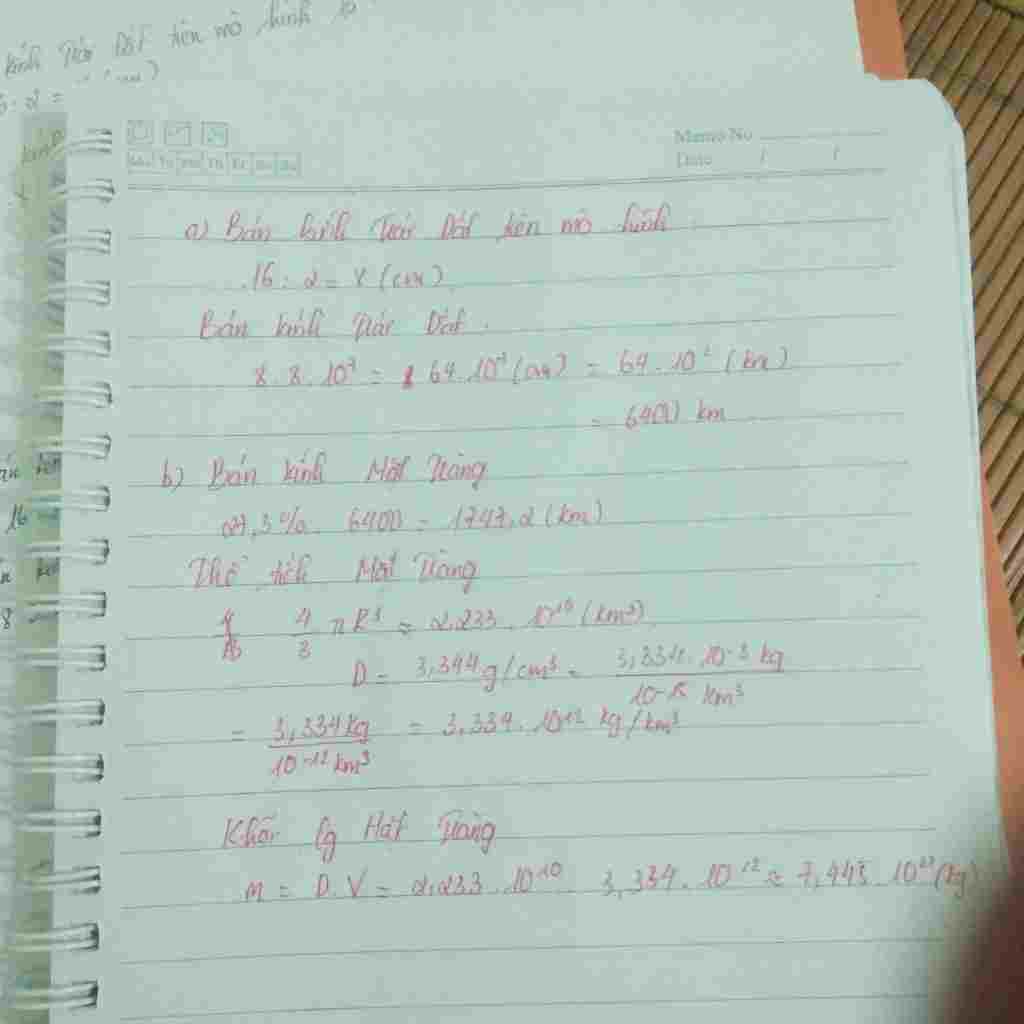 kính Trái Đất trên mô hình
Memo No
Date / /
a) Bán kính Trái Đất trên mô hình :
16 : 2 = 8 (cm)
Bán kính Trái Đất :
8 . 8 . 10⁷ = 64 . 10⁷ (cm) = 64 . 10² (km)
= 6400 km
b) Bán kính Mặt Trăng
27,3% . 6400 = 1747,2 (km)
Thể tích Mặt Trăng
4/3 π R³ = 2,233 . 10¹⁰ (km³)
D = 3,344 g/cm³ = 3,334 . 10⁻³ kg / 10⁻¹⁵ km³
= 3,334 kg / 10⁻¹² km³ = 3,334 . 10¹² kg/km³
Khối lg Mặt Trăng
m = D . V = 2,233 . 10¹⁰ . 3,334 . 10¹² ≈ 7,445 . 10²² (kg)